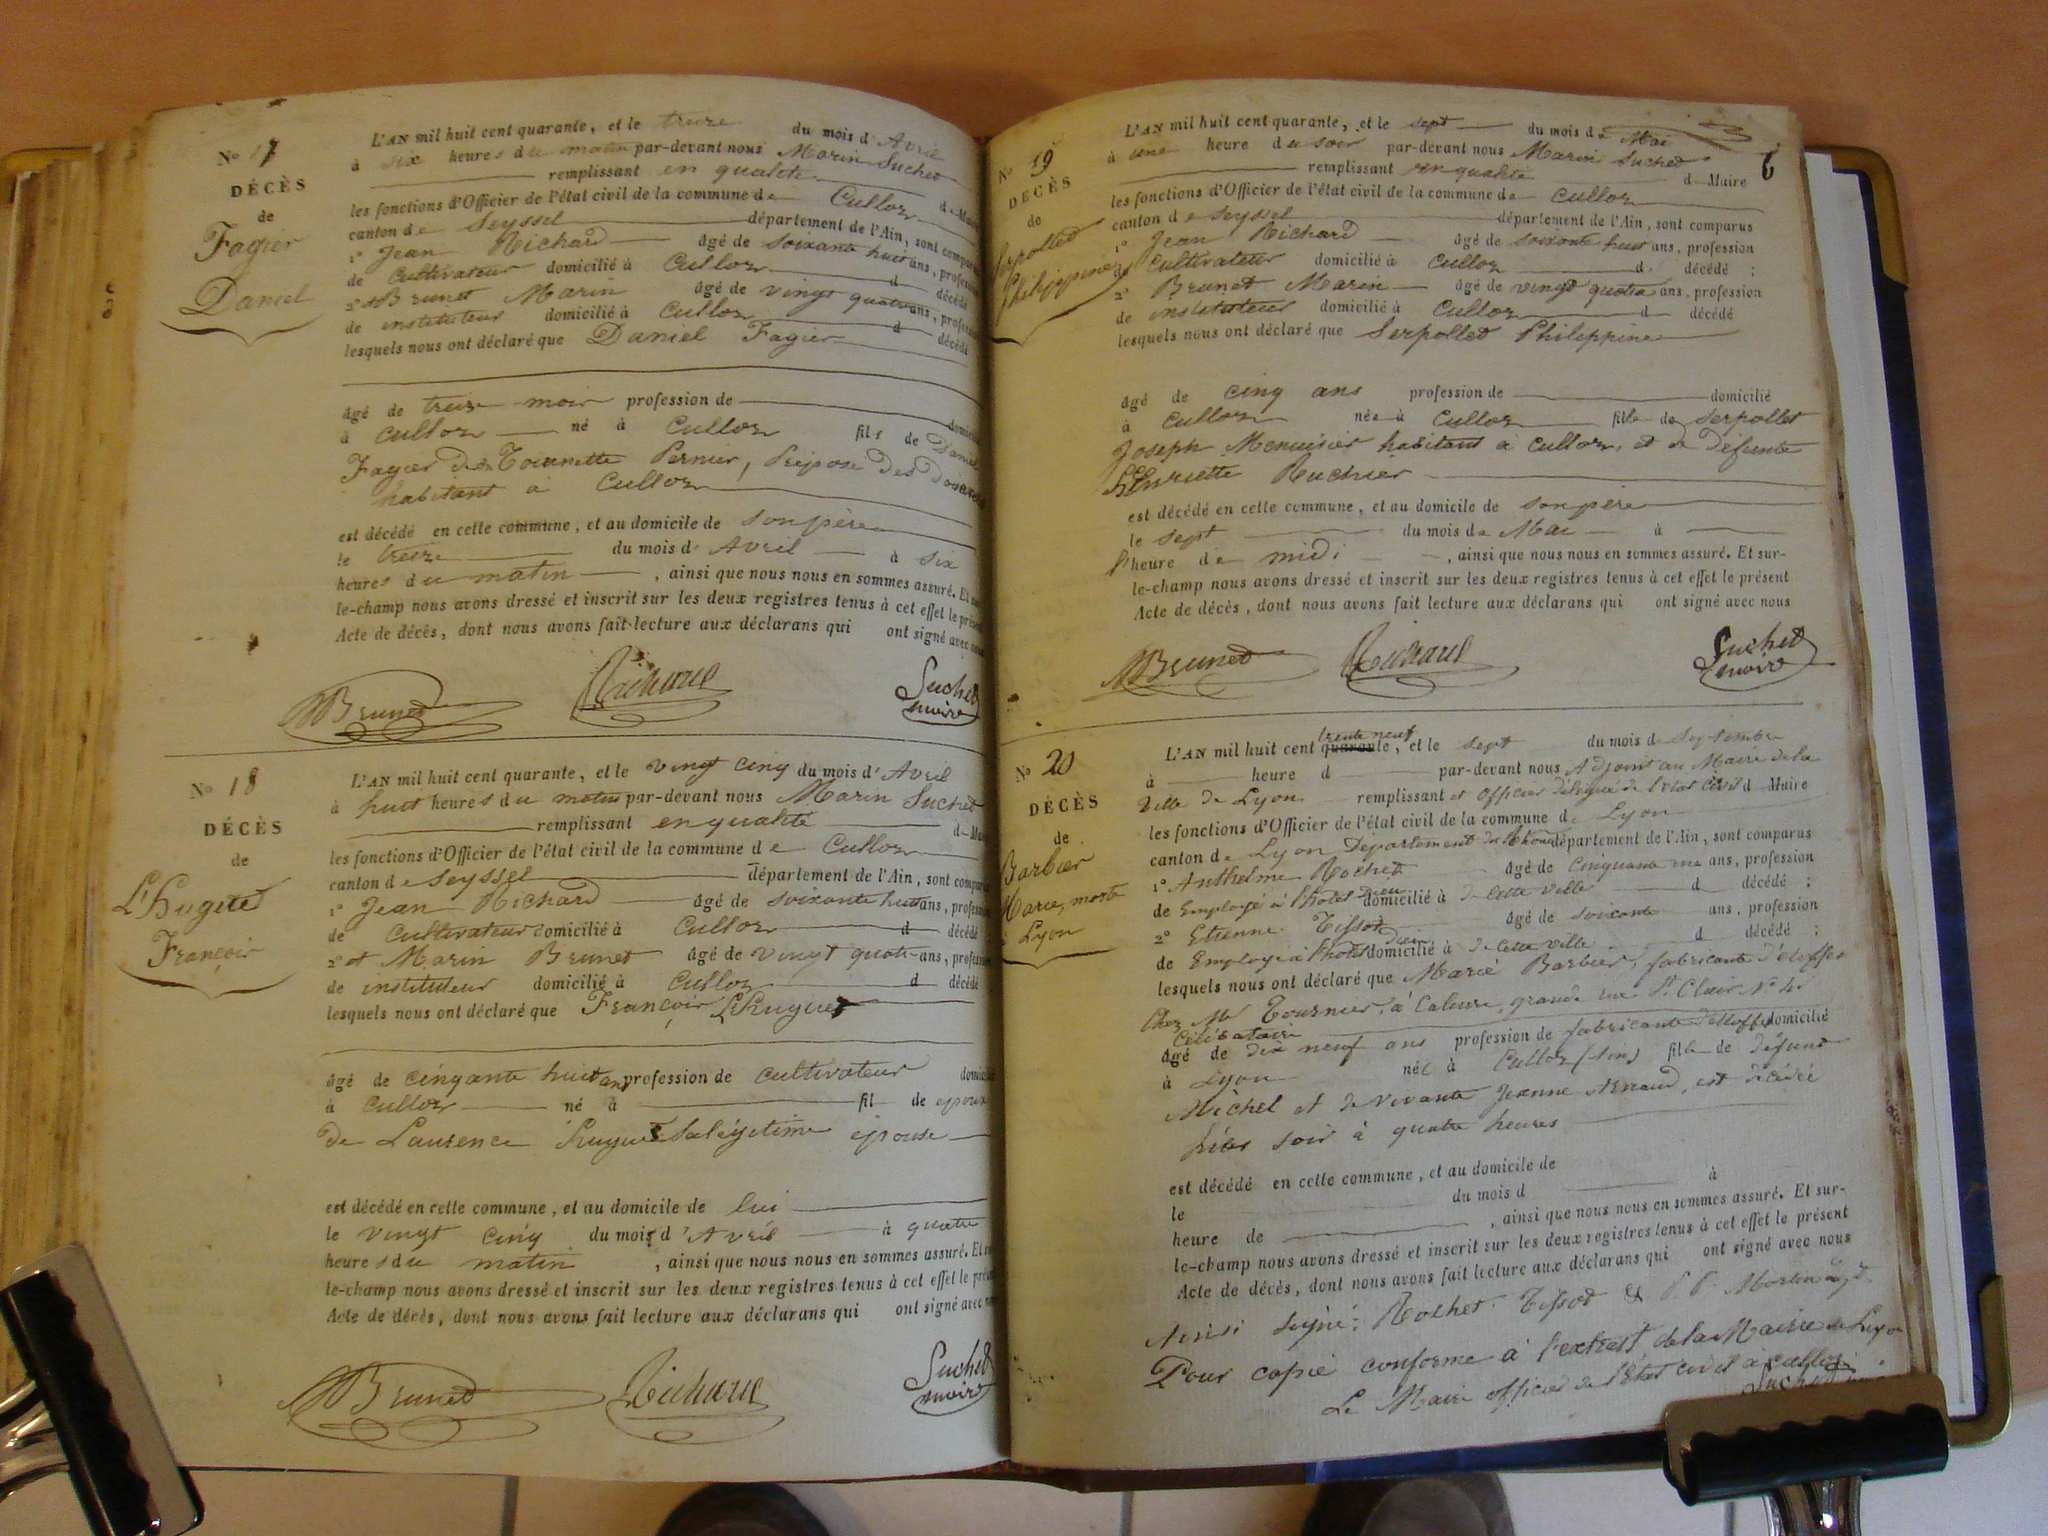 N° 17
DÉCÈS
de
Fagier
Daniel
L'AN mil huit cent quarante, et le treize du mois d'Avril
à six heures du matin par-devant nous Marin Suchet
remplissant en qualité de Maire
les fonctions d'Officier de l'état civil de la commune de Culloz
canton de Seyssel département de l'Ain, sont comparus
1° Jean Richard âgé de soixante huit ans, profession
de Cultivateur domicilié à Culloz d décédé
2° et Brunet Marin âgé de vingt quatre ans, profession
de instituteur domicilié à Culloz d décédé
lesquels nous ont déclaré que Daniel Fagier
âgé de treize mois profession de domicilié
à Culloz né à Culloz fils de Daniel
Fagier et de Toinette Pernier, Préposé des Douanes
habitant à Culloz
est décédé en cette commune, et au domicile de son père
le treize du mois d'Avril à six
heures du matin, ainsi que nous nous en sommes assuré. Et sur-
le-champ nous avons dressé et inscrit sur les deux registres tenus à cet effet le présent
Acte de décès, dont nous avons fait lecture aux déclarans qui ont signé avec nous
MBrunet Richard Suchet
maire
N° 18
DÉCÈS
de
L'Huguet
François
L'AN mil huit cent quarante, et le vingt cinq du mois d'Avril
à huit heures du matin par-devant nous Marin Suchet
remplissant en qualité de Maire
les fonctions d'Officier de l'état civil de la commune de Culloz
canton de Seyssel département de l'Ain, sont comparus
1° Jean Richard âgé de soixante huit ans, profession
de Cultivateur domicilié à Culloz d décédé
2° et Marin Brunet âgé de vingt quatre ans, profession
de instituteur domicilié à Culloz d décédé
lesquels nous ont déclaré que François L'Huguet
âgé de cinqante huit ans profession de cultivateur domicilié
à Culloz né à fil de époux
de Laurence sa légitime épouse
est décédé en cette commune, et au domicile de lui
le vingt cinq du mois d'Avril à quatre
heures du matin, ainsi que nous nous en sommes assuré. Et sur-
le-champ nous avons dressé et inscrit sur les deux registres tenus à cet effet le présent
Acte de décès, dont nous avons fait lecture aux déclarans qui ont signé avec nous
MBrunet Richard Suchet
maire
6
N° 19
DÉCÈS
de
Serpollet
Philippine
L'AN mil huit cent quarante, et le sept du mois de Mai
à une heure du soir par-devant nous Marin Suchet
remplissant en qualité de Maire
les fonctions d'Officier de l'état civil de la commune de Culloz
canton de Seyssel département de l'Ain, sont comparus
1° Jean Richard âgé de soixante huit ans, profession
de Cultivateur domicilié à Culloz d décédé ;
2° Brunet Marin âgé de vingt quatre ans, profession
de instituteur domicilié à Culloz d décédé
lesquels nous ont déclaré que Serpollet Philippine
âgé de cinq ans profession de domicilié
à Culloz née à Culloz fille de Serpollet
Joseph Menuisier habitant à Culloz, et de Défunte
Henriette Ruchier
est décédé en cette commune, et au domicile de son père
le sept du mois de Mai à
l'heure de midi, ainsi que nous nous en sommes assuré. Et sur-
le-champ nous avons dressé et inscrit sur les deux registres tenus à cet effet le présent
Acte de décès, dont nous avons fait lecture aux déclarans qui ont signé avec nous
MBrunet Richard Suchet
maire
N° 20
DÉCÈS
de
Barbier
Marie, morte
à Lyon
L'AN mil huit cent quarante trente neuf, et le sept du mois de Septembre
à heure d par-devant nous Adjoint au Maire de la
Ville de Lyon remplissant et Officier délégué de l'état civil d Maire
les fonctions d'Officier de l'état civil de la commune de Lyon
canton de Lyon Département du Rhône département de l'Ain, sont comparus
1° Anthelme Rochet âgé de Cinquante ans, profession
de Employé à l'hotel Dieu domicilié à de cette ville d décédé ;
2° Etienne Tissot âgé de soixante ans, profession
de Employé à l'hotel Dieu domicilié à de cette ville d décédé ;
lesquels nous ont déclaré que Marie Barbier, fabricante d'étoffes
Chez Mr Tournier, à Caluire, grande rue St Clair N° 4
Célibataire
âgé de dix neuf ans profession de fabricante d'étoffes domicilié
à Lyon née à Culloz (Ain) fille de défunt
Michel et de vivante Jeanne, est décédée
hier soir à quatre heures
est décédé en cette commune, et au domicile de
le du mois d à
heure de, ainsi que nous nous en sommes assuré. Et sur-
le-champ nous avons dressé et inscrit sur les deux registres tenus à cet effet le présent
Acte de décès, dont nous avons fait lecture aux déclarans qui ont signé avec nous
Ainsi signé : Rochet Tissot & Martin
Pour copie conforme à l'extrait de la Mairie de Lyon
Le Maire officier de l'état civil à Culloz
Suchet